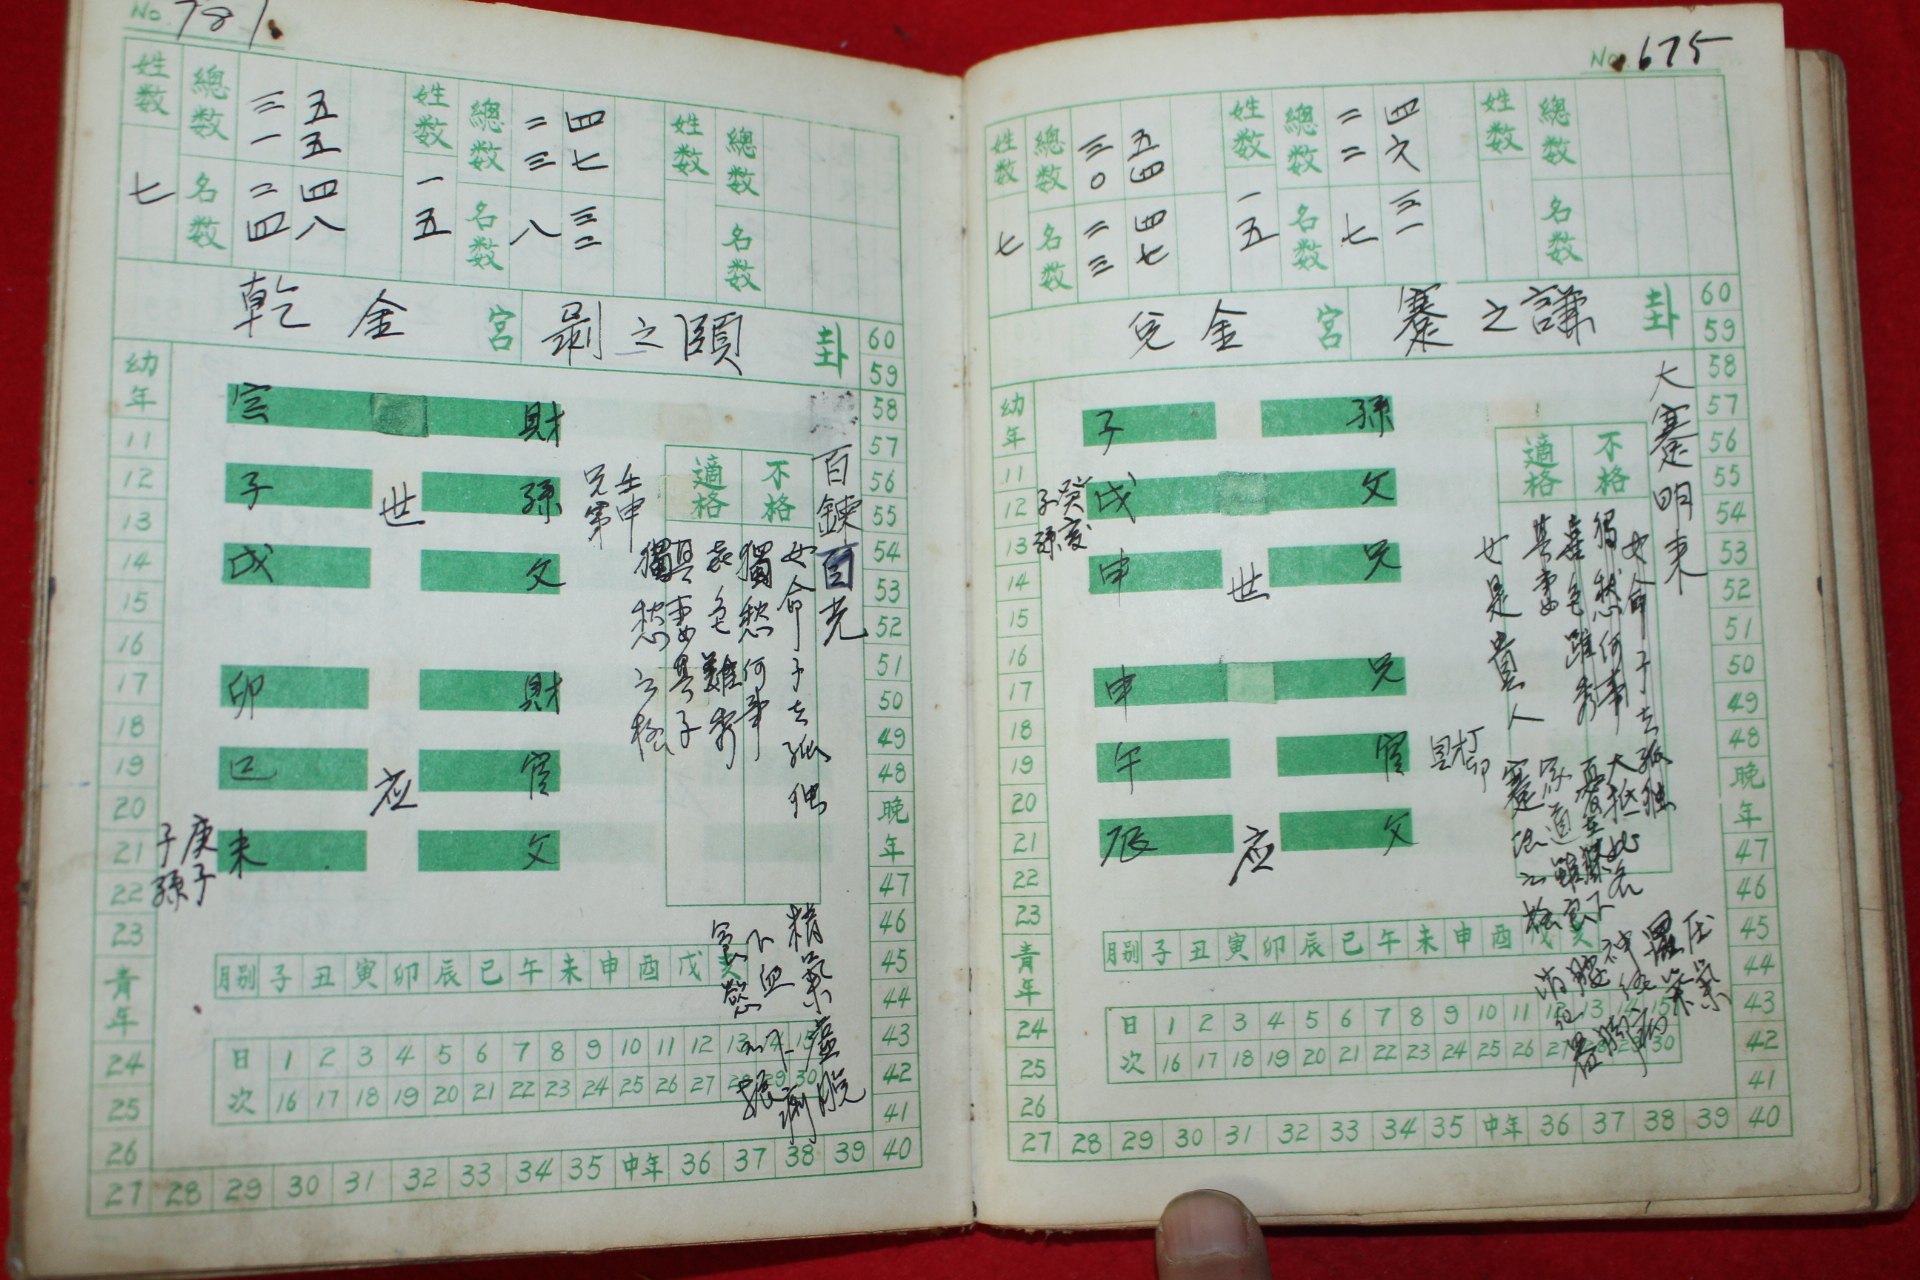 No. 781.
姓数 七
總数 三一 五五
名数 二四 四八
姓数 一五
總数 二三 四七
名数 八 三二
姓数
總数
名数
乾金宮 剝之頤卦
幼年 11 12 13 14 15 16 17 18 19 20 21 22 23 青年 24 25 26
27 28 29 30 31 32 33 34 35 中年 36 37 38 39 40
60 59 58 57 56 55 54 53 52 51 50 49 48 晩年 47 46 45 44 43 42 41
財
子 世 孫
戌 父
卯 財
巳 应 官
未 父
兄弟 壬申
子孫 庚子
適格 不格
百鍊百光
女命子去孤独
獨愁何事
月别 子 丑 寅 卯 辰 巳 午 未 申 酉 戌 亥
日次 1 2 3 4 5 6 7 8 9 10 11 12 13 14 15
16 17 18 19 20 21 22 23 24 25 26 27 28 29 30
No. 675
姓数 七
總数 三〇 五四
名数 二三 四七
姓数 一五
總数 二二 四六
名数 七 三一
姓数
總数
名数
兌金宮 蹇之謙卦
幼年 11 12 13 14 15 16 17 18 19 20 21 22 23 青年 24 25 26
27 28 29 30 31 32 33 34 35 中年 36 37 38 39 40
60 59 58 57 56 55 54 53 52 51 50 49 48 晩年 47 46 45 44 43 42 41
子 孫
戌 父
申 世 兄
申 兄
午 官
辰 应 父
子孫 癸亥
財卯
適格 不格
大蹇明来
女命子去孤独
獨愁何事
女是貴人
月别 子 丑 寅 卯 辰 巳 午 未 申 酉 戌 亥
日次 1 2 3 4 5 6 7 8 9 10 11 12 13 14 15
16 17 18 19 20 21 22 23 24 25 26 27 28 29 30